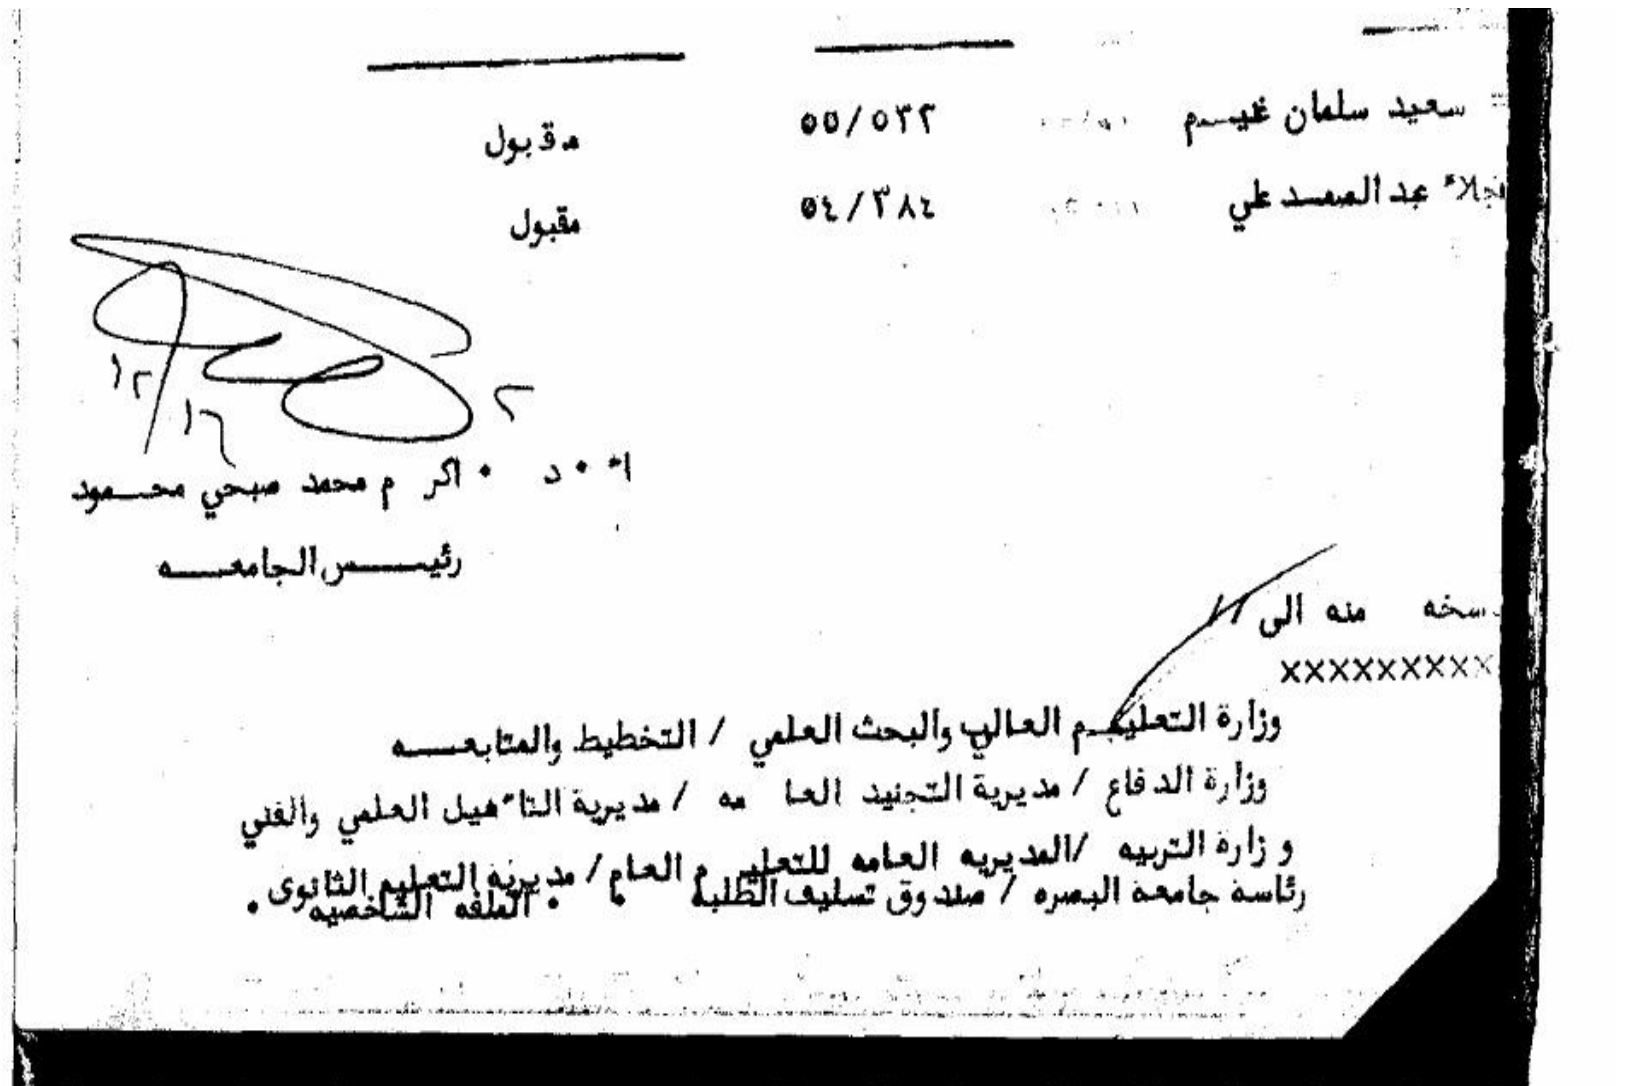 سعيد سلمان غيـــم ٥٥/٥٣٢ مقبول
نجلاء عبد الصمــد علي ٥٤/٣٨٤ مقبول
١٢/١٦
أ ٠ د ٠ اكرم محمد صبحي محـــمود
رئيـــــس الجامعـــــه
نسخه منه الى //
xxxxxxxxxx
وزارة التعليـم العالي والبحث العلمي / التخطيط والمتابعـــــه
وزارة الدفاع / مديرية التجنيد العامه / مديرية التأهيل العلمي والفني
وزارة التربيه /المديريه العامه للتعليم العام/ مديرية التعليم الثانوى
رئاسة جامعة البصره / صندوق تسليف الطلبه ٠ ٠ الملفه الشاخصيه ٠